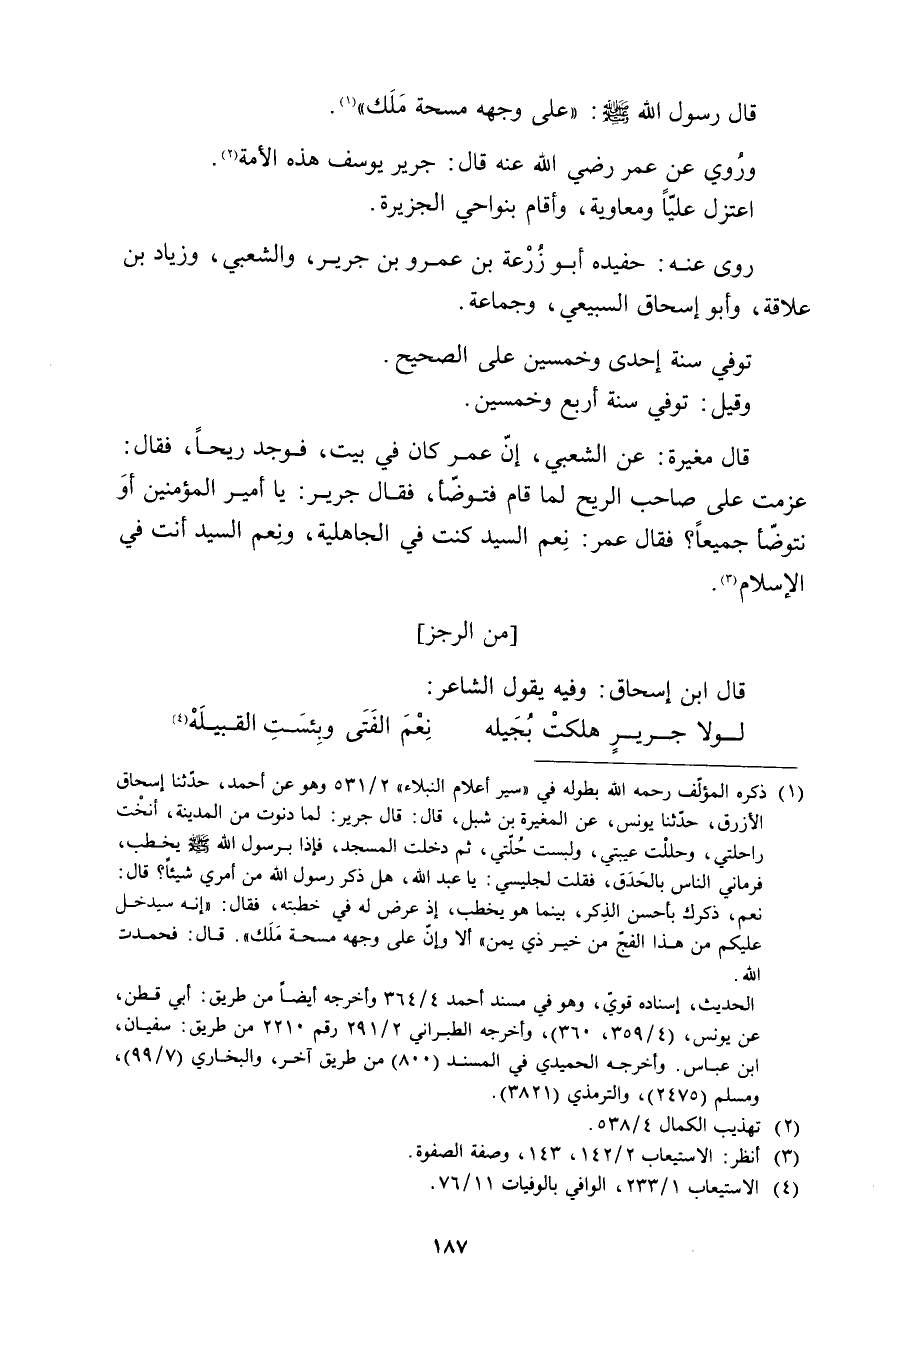 قال رسول الله ﷺ: «على وجهه مسحة مَلَك»(١).
ورُوي عن عمر رضي الله عنه قال: جرير يوسف هذه الأمة(٢).
اعتزل عليّاً ومعاوية، وأقام بنواحي الجزيرة.
روى عنه: حفيده أبو زُرْعة بن عمرو بن جرير، والشعبي، وزياد بن
علاقة، وأبو إسحاق السبيعي، وجماعة.
توفي سنة إحدى وخمسين على الصحيح.
وقيل: توفي سنة أربع وخمسين.
قال مغيرة: عن الشعبي، إنّ عمر كان في بيت، فوجد ريحاً، فقال:
عزمت على صاحب الريح لما قام فتوضّأ، فقال جرير: يا أمير المؤمنين أوَ
نتوضّأ جميعاً؟ فقال عمر: نِعم السيد كنت في الجاهلية، ونِعم السيد أنت في
الإسلام(٣).
[من الرجز]
قال ابن إسحاق: وفيه يقول الشاعر:
لولا جريرٍ هلكتْ بُجَيله نِعْمَ الفَتَى وبِئسَتِ القبيلَهْ(٤)
(١) ذكره المؤلّف رحمه الله بطوله في «سير أعلام النبلاء» ٥٣١/٢ وهو عن أحمد، حدّثنا إسحاق
الأزرق، حدّثنا يونس، عن المغيرة بن شبل، قال: قال جرير: لما دنوت من المدينة، أنخْت
راحلتي، وحللْت عيبتي، ولبست حُلّتي، ثم دخلت المسجد، فإذا برسول الله ﷺ يخطب،
فرماني الناس بالحَدَق، فقلت لجليسي: يا عبد الله، هل ذكر رسول الله من أمري شيئاً؟ قال:
نعم، ذكرك بأحسن الذِكر، بينما هو يخطب، إذ عرض له في خطبته، فقال: «إنه سيدخل
عليكم من هذا الفجّ من خير ذي يمن» ألا وإنّ على وجهه مسحة مَلَك». قال: فحمدت
الله.
الحديث، إسناده قويّ، وهو في مسند أحمد ٣٦٤/٤ وأخرجه أيضاً من طريق: أبي قطن،
عن يونس، (٣٥٩/٤، ٣٦٠)، وأخرجه الطبراني ٢٩١/٢ رقم ٢٢١٠ من طريق: سفيان،
ابن عباس. وأخرجه الحميدي في المسند (٨٠٠) من طريق آخر، والبخاري (٩٩/٧)،
ومسلم (٢٤٧٥)، والترمذي (٣٨٢١).
(٢) تهذيب الكمال ٥٣٨/٤.
(٣) أنظر: الاستيعاب ١٤٢/٢، ١٤٣، وصفة الصفوة.
(٤) الاستيعاب ٢٣٣/١، الوافي بالوفيات ٧٦/١١.
١٨٧